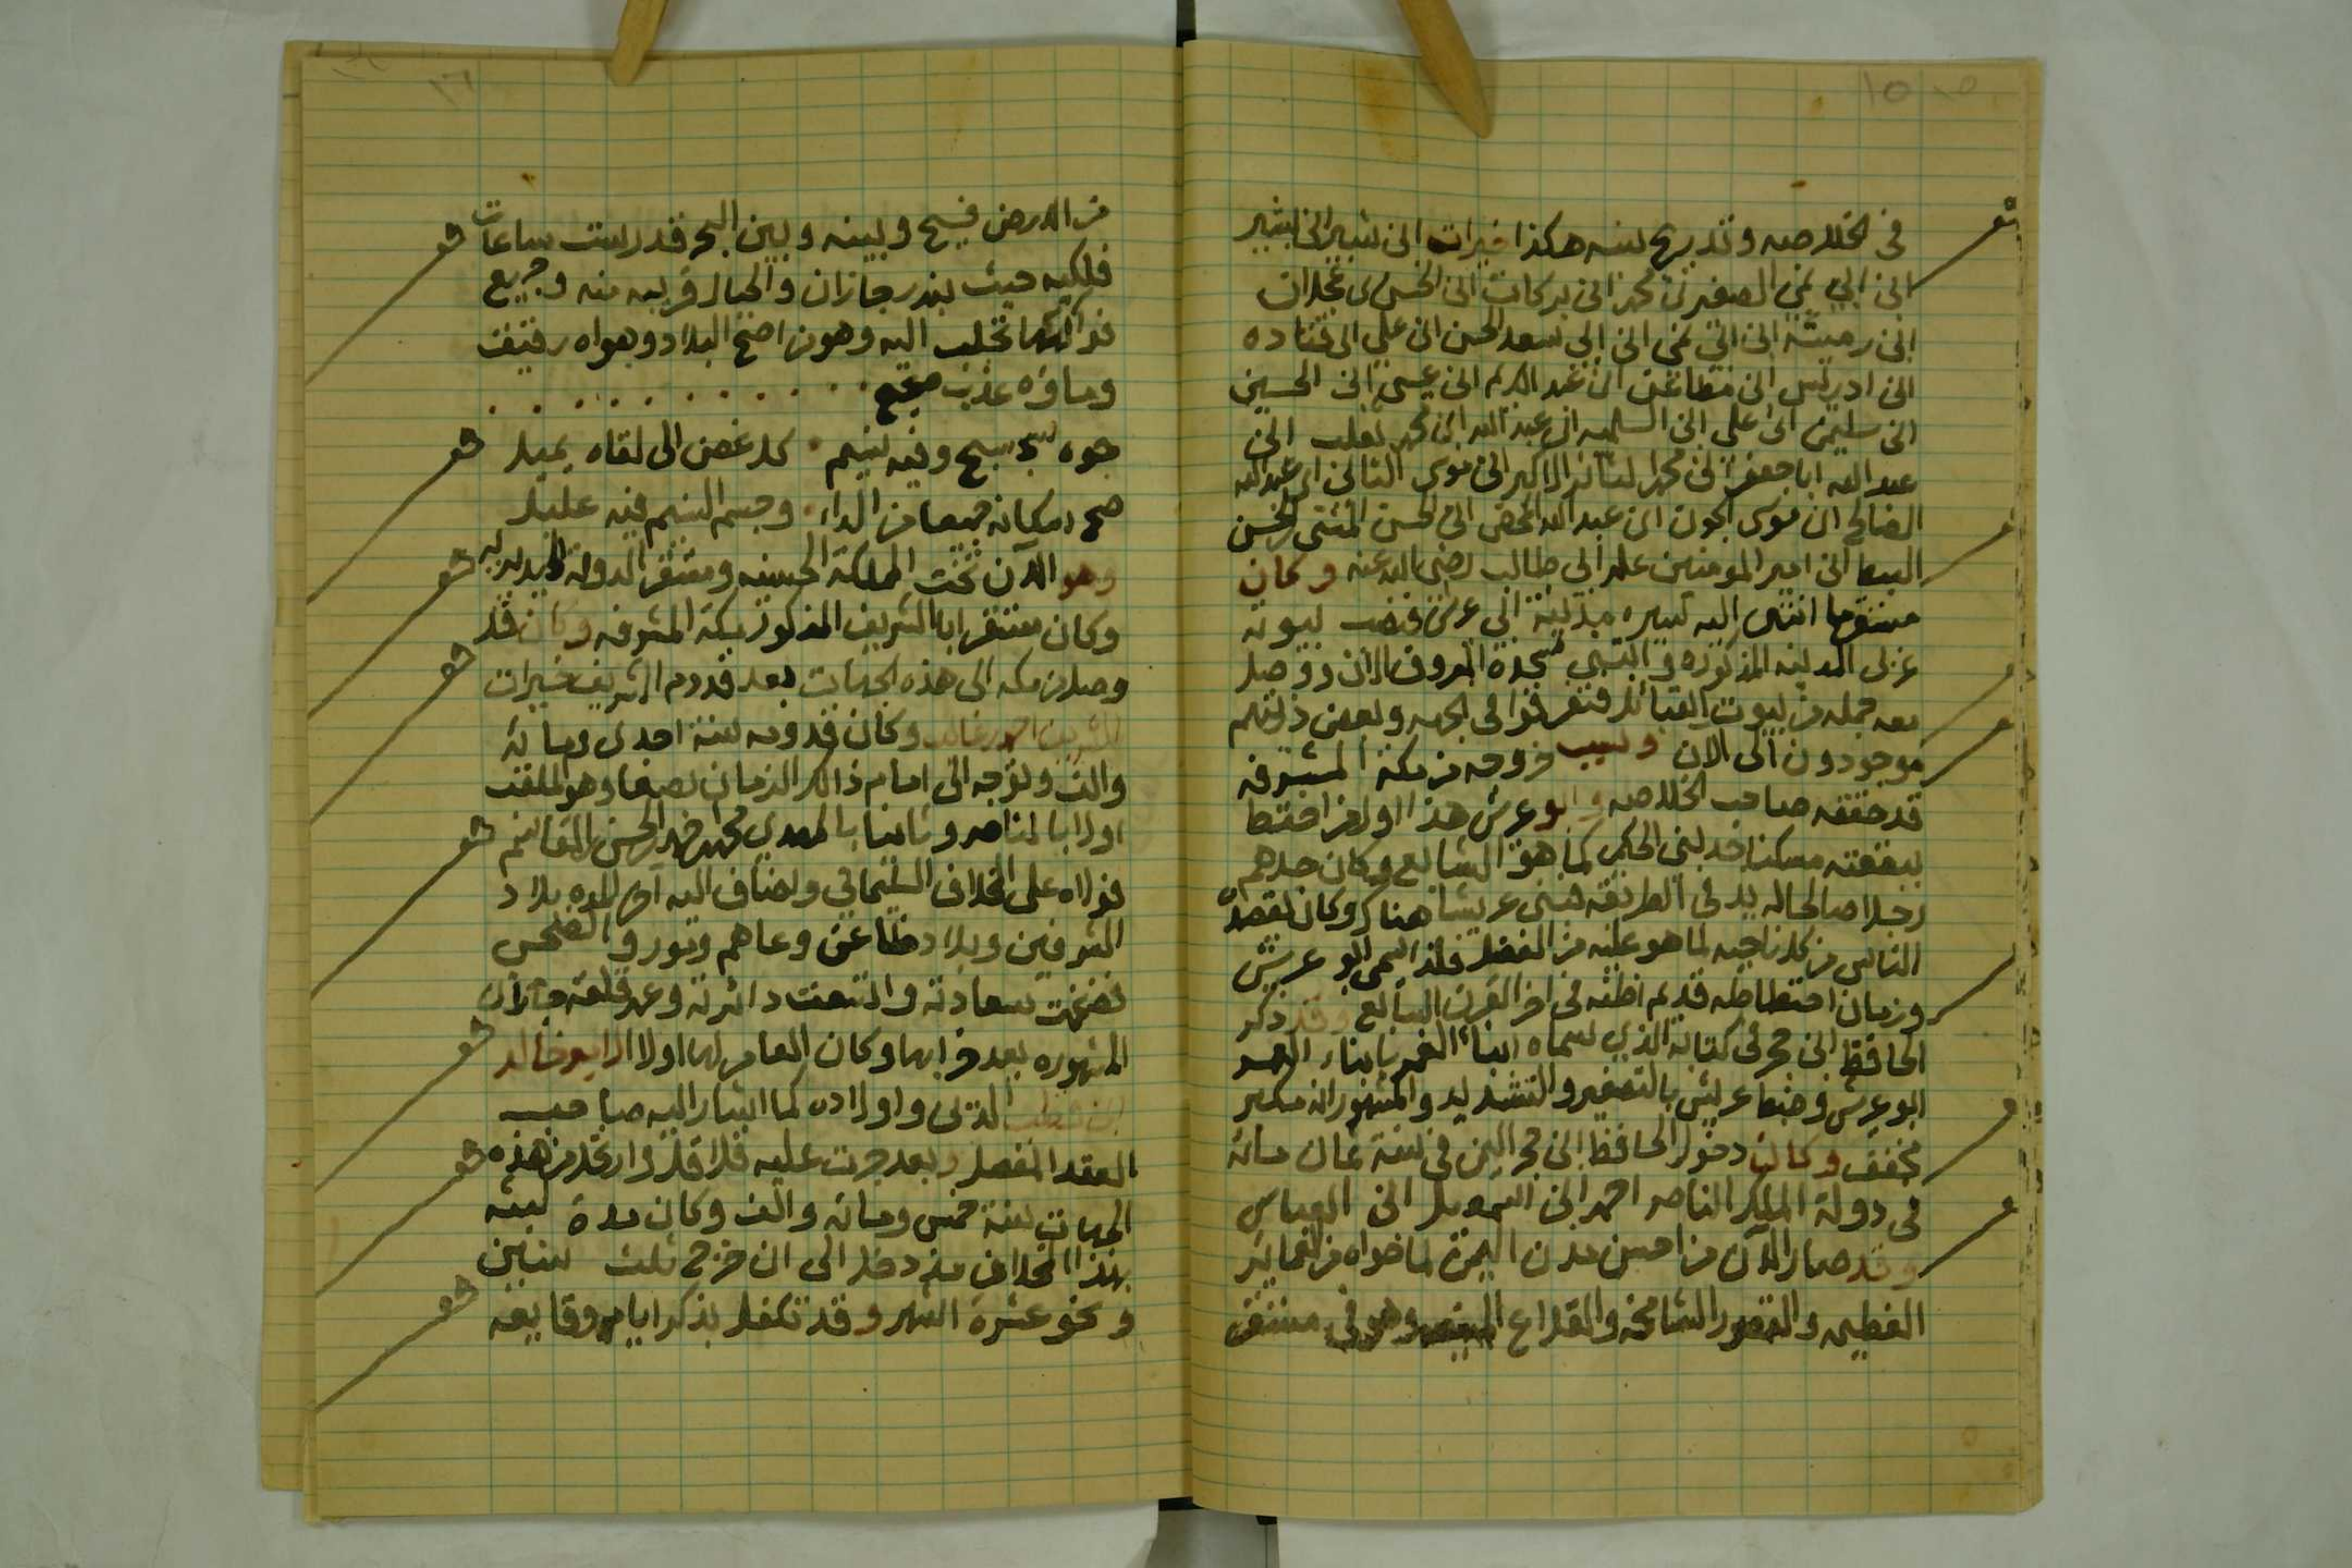 ١٥
في الخلاصه وتدريج نسبه هكذا خيرات ابن شبير ابن بشير
ابن ابي نمي الصغير بن محمد ابن بركات ابن الحسن بن عجلان
ابن رميثه ابن ابي نمي ابن ابي سعد الحسن ابن علي ابن قتاده
ابن ادريس ابن مطاعن ابن عبد الكريم ابن عيسى ابن الحسين
ابن سليمن ابن علي ابن السلميه ابن عبد الله ابن محمد ثعلب ابن
عبد الله ابا جعفر ابن محمد الثائر الاكبر ابن موسى الثاني ابن عبد الله
الصالح ابن موسى الجون ابن عبد الله المحض ابن الحسن المثنى ابن الحسن
السبط ابن امير المؤمنين علي ابن ابي طالب رضي الله عنه وكان
انتهى اليه سيره مدينة ابي عريش فنصب بيوته
غربي المدينه المذكوره وابتنى مسجده المعروف الان ووصل
معه جمله من بيوت القبائل فتفرقوا في الجهه وبعض ذريتهم
موجودون الى الان وسبب خروجه من مكة المشرفه
قد حققه صاحب الخلاصه وابو عريش هذا اول من اختط
ببقعته مسكنا جد بني الحكمي كما هو الشايع وكان جدهم
رجلا صالحا له يد في الطريقه فبنى عريشا هناك وكان يقصده
الناس من كل ناحيه لما هو عليه من الفضل فلذا سمي ابو عريش
وزمان اختطاطه قديم اظنه في اخر القرن السابع وقد ذكر
الحافظ ابن حجر في كتابه الذي سماه انباء الغمر بابناء العمر
ابو عريش وضبط عريش بالتصغير والتشديد والمشهور انه مكبر
مخفف وكان دخول الحافظ ابن حجر اليمن في سنة ثمان مائه
في دولة الملك الناصر احمد ابن اسمعيل ابن العباس
وقد صار الآن من احسن مدن اليمن لما حواه من العمائر
العظيمه والقصور الشامخه والقلاع وهو في مستقر
١٦
من الارض فسيح وبينه وبين البحر قدر ست ساعات
فلكيه حيث بندر جازان والجبال قريبه منه وجميع
فواكهها تجلب اليه وهو من اصح البلاد وهواه رقيق
وماؤه عذب
جوه سجسج وفيه نسيم كل غصن الى لقاه يميل
صح مكانه جميعا من الداء وجسم النسيم فيه عليل
وهو الآن تخت المملكة الحسنيه ومستقر الدولة
وكان مستقر ابا الشريف المذكور بمكة المشرفه وكان قد
وصل من مكه الى هذه الجهات بعد قدوم الشريف خيرات
الشريف احمد غالب وكان قدومه سنة احدى ومائة
والف وتوجه الى امام ذلك الزمان بصنعا وهو الملقب
اولا بالناصر وثانيا بالمهدي محمد احمد الحسن القاسم
فولاه على المخلاف السليماني واضاف اليه بلاد
الشرفين وبلاد ظاعن وعاهم وتور والضحى
فضخمت سعادته واتسعت دائرته وعمر قلعة جازان
المشهوره بعد خرابها وكان العامر لها اولا الامير خالد
ابن قطب الدين واولاده كما اشار اليه صاحب
العقد المفصل وبعد جرت عليه قلاقل وارتحل من هذه
الجهات سنة خمس ومائه والف وكان مدة لبثه
بهذا المخلاف منذ دخل الى ان خرج ثلث سنين
ونحو عشرة اشهر وقد تكفل بذكر ايامه ووقايعه